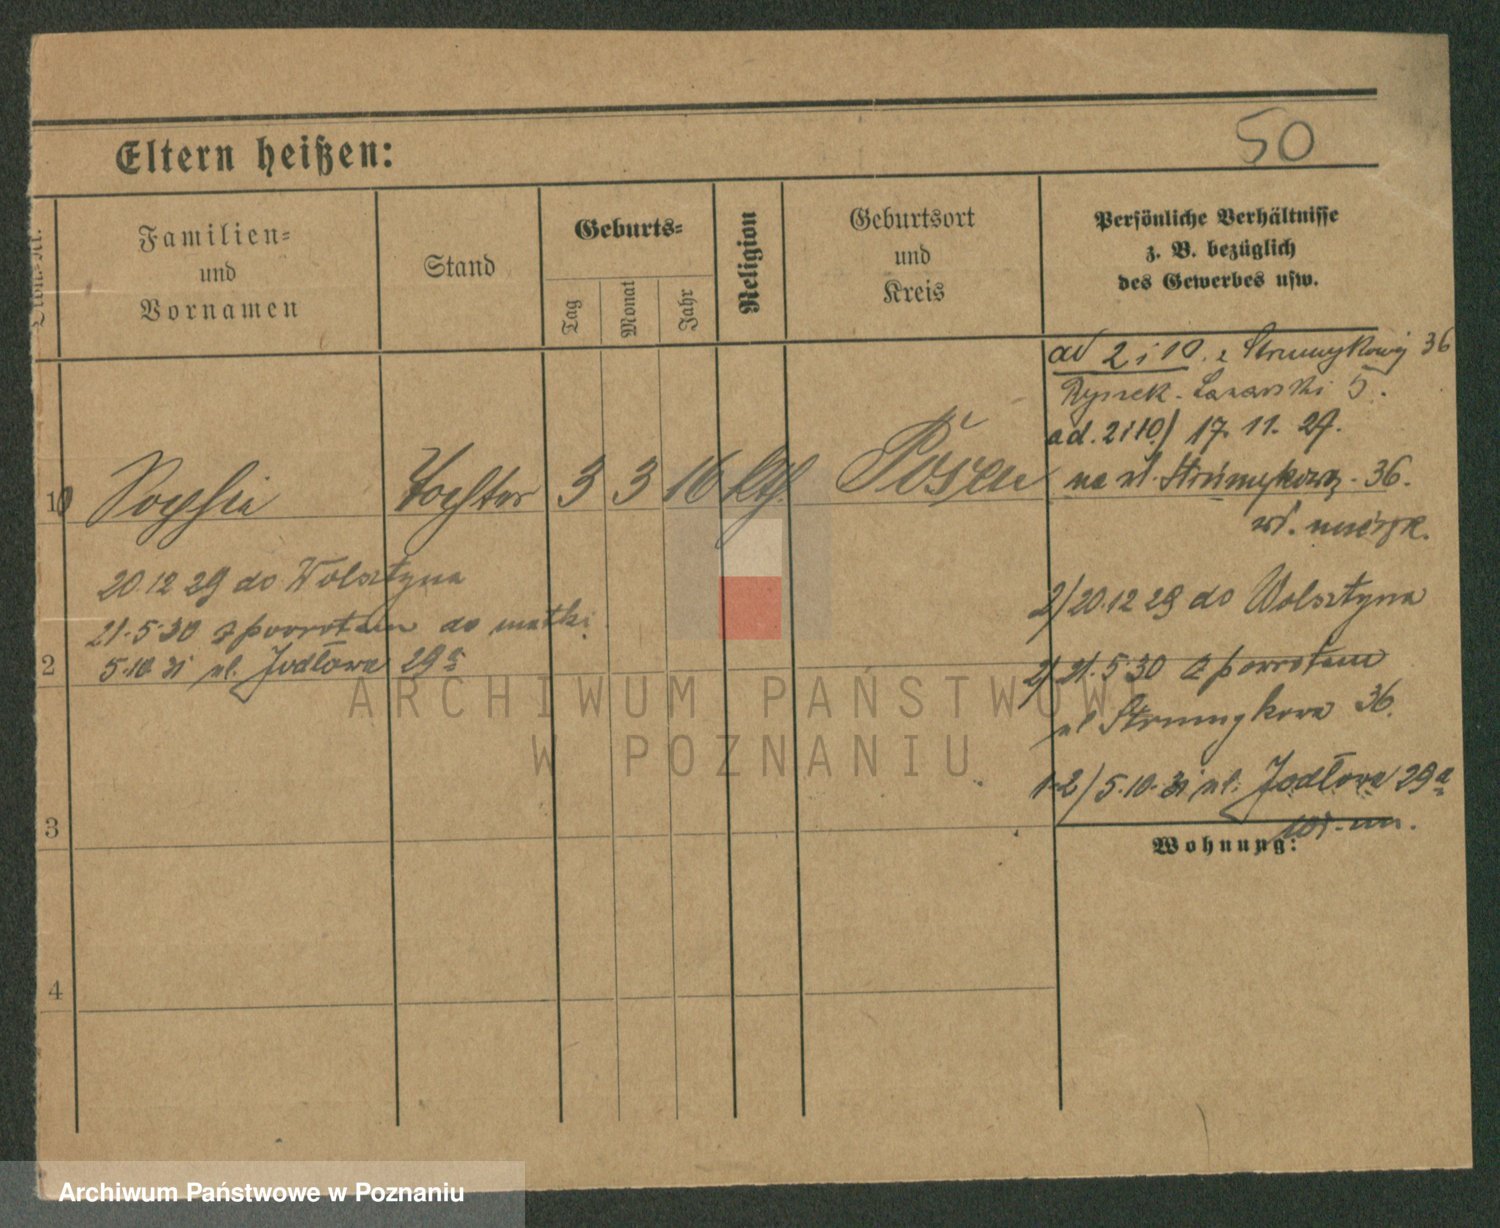 50
Eltern heißen:
Familien-
und
Vornamen
Stand
Geburts-
Tag
Monat
Jahr
Religion
Geburtsort
und
Kreis
Persönliche Verhältnisse
z. B. bezüglich
des Gewerbes usw.
ad 2 i 10. z Strumykowej 36
Rynek Łazarski 5.
ad. 2 i 10/ 17. 11. 27.
na ul. Strumykową 36.
10 Sophie Tochter 3 3 16 kth. Posen
20.12 29 do Wolsztyna
21.5.30 z powrotem do matki
5.10 31 ul. Jodłowa 29a
2/20.12 29 do Wolsztyna
2/ 21.5.30 z powrotem
ul Strumykowa 36.
1-2/ 5.10.31 ul. Jodłowa 29a
Wohnung:
2
3
4
ARCHIWUM PAŃSTWOWE
W POZNANIU
Archiwum Państwowe w Poznaniu